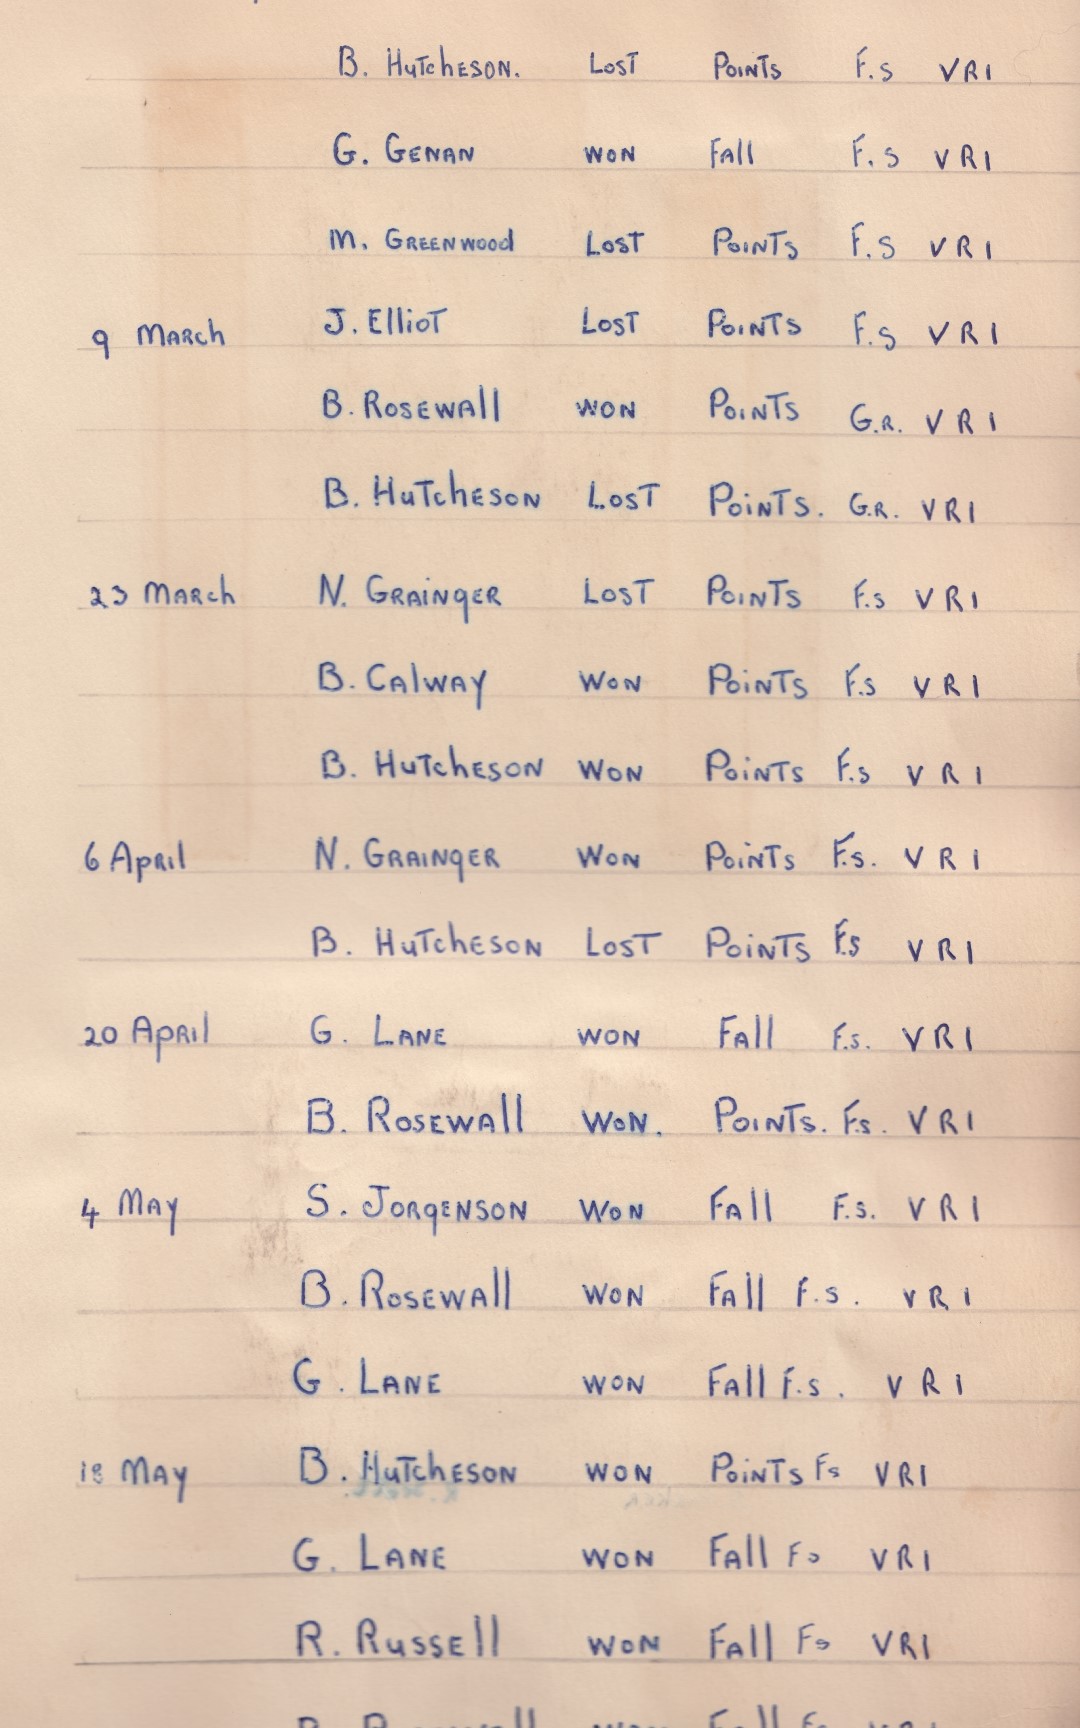 B. HUTCHESON. LOST POINTS F.S VRI
G. GENAN WON FALL F.S VRI
M. GREENWOOD LOST POINTS F.S VRI
9 MARCH J. ELLIOT LOST POINTS F.S VRI
B. ROSEWALL WON POINTS G.R. VRI
B. HUTCHESON LOST POINTS. G.R. VRI
23 MARCH N. GRAINGER LOST POINTS F.S VRI
B. CALWAY WON POINTS F.S VRI
B. HUTCHESON WON POINTS F.S VRI
6 APRIL N. GRAINGER WON POINTS F.S. VRI
B. HUTCHESON LOST POINTS F.S VRI
20 APRIL G. LANE WON FALL F.S. VRI
B. ROSEWALL WON. POINTS. F.S. VRI
4 MAY S. JORGENSON WON FALL F.S. VRI
B. ROSEWALL WON FALL F.S. VRI
G. LANE WON FALL F.S. VRI
18 MAY B. HUTCHESON WON POINTS FS VRI
G. LANE WON FALL FS VRI
R. RUSSELL WON FALL FS VRI